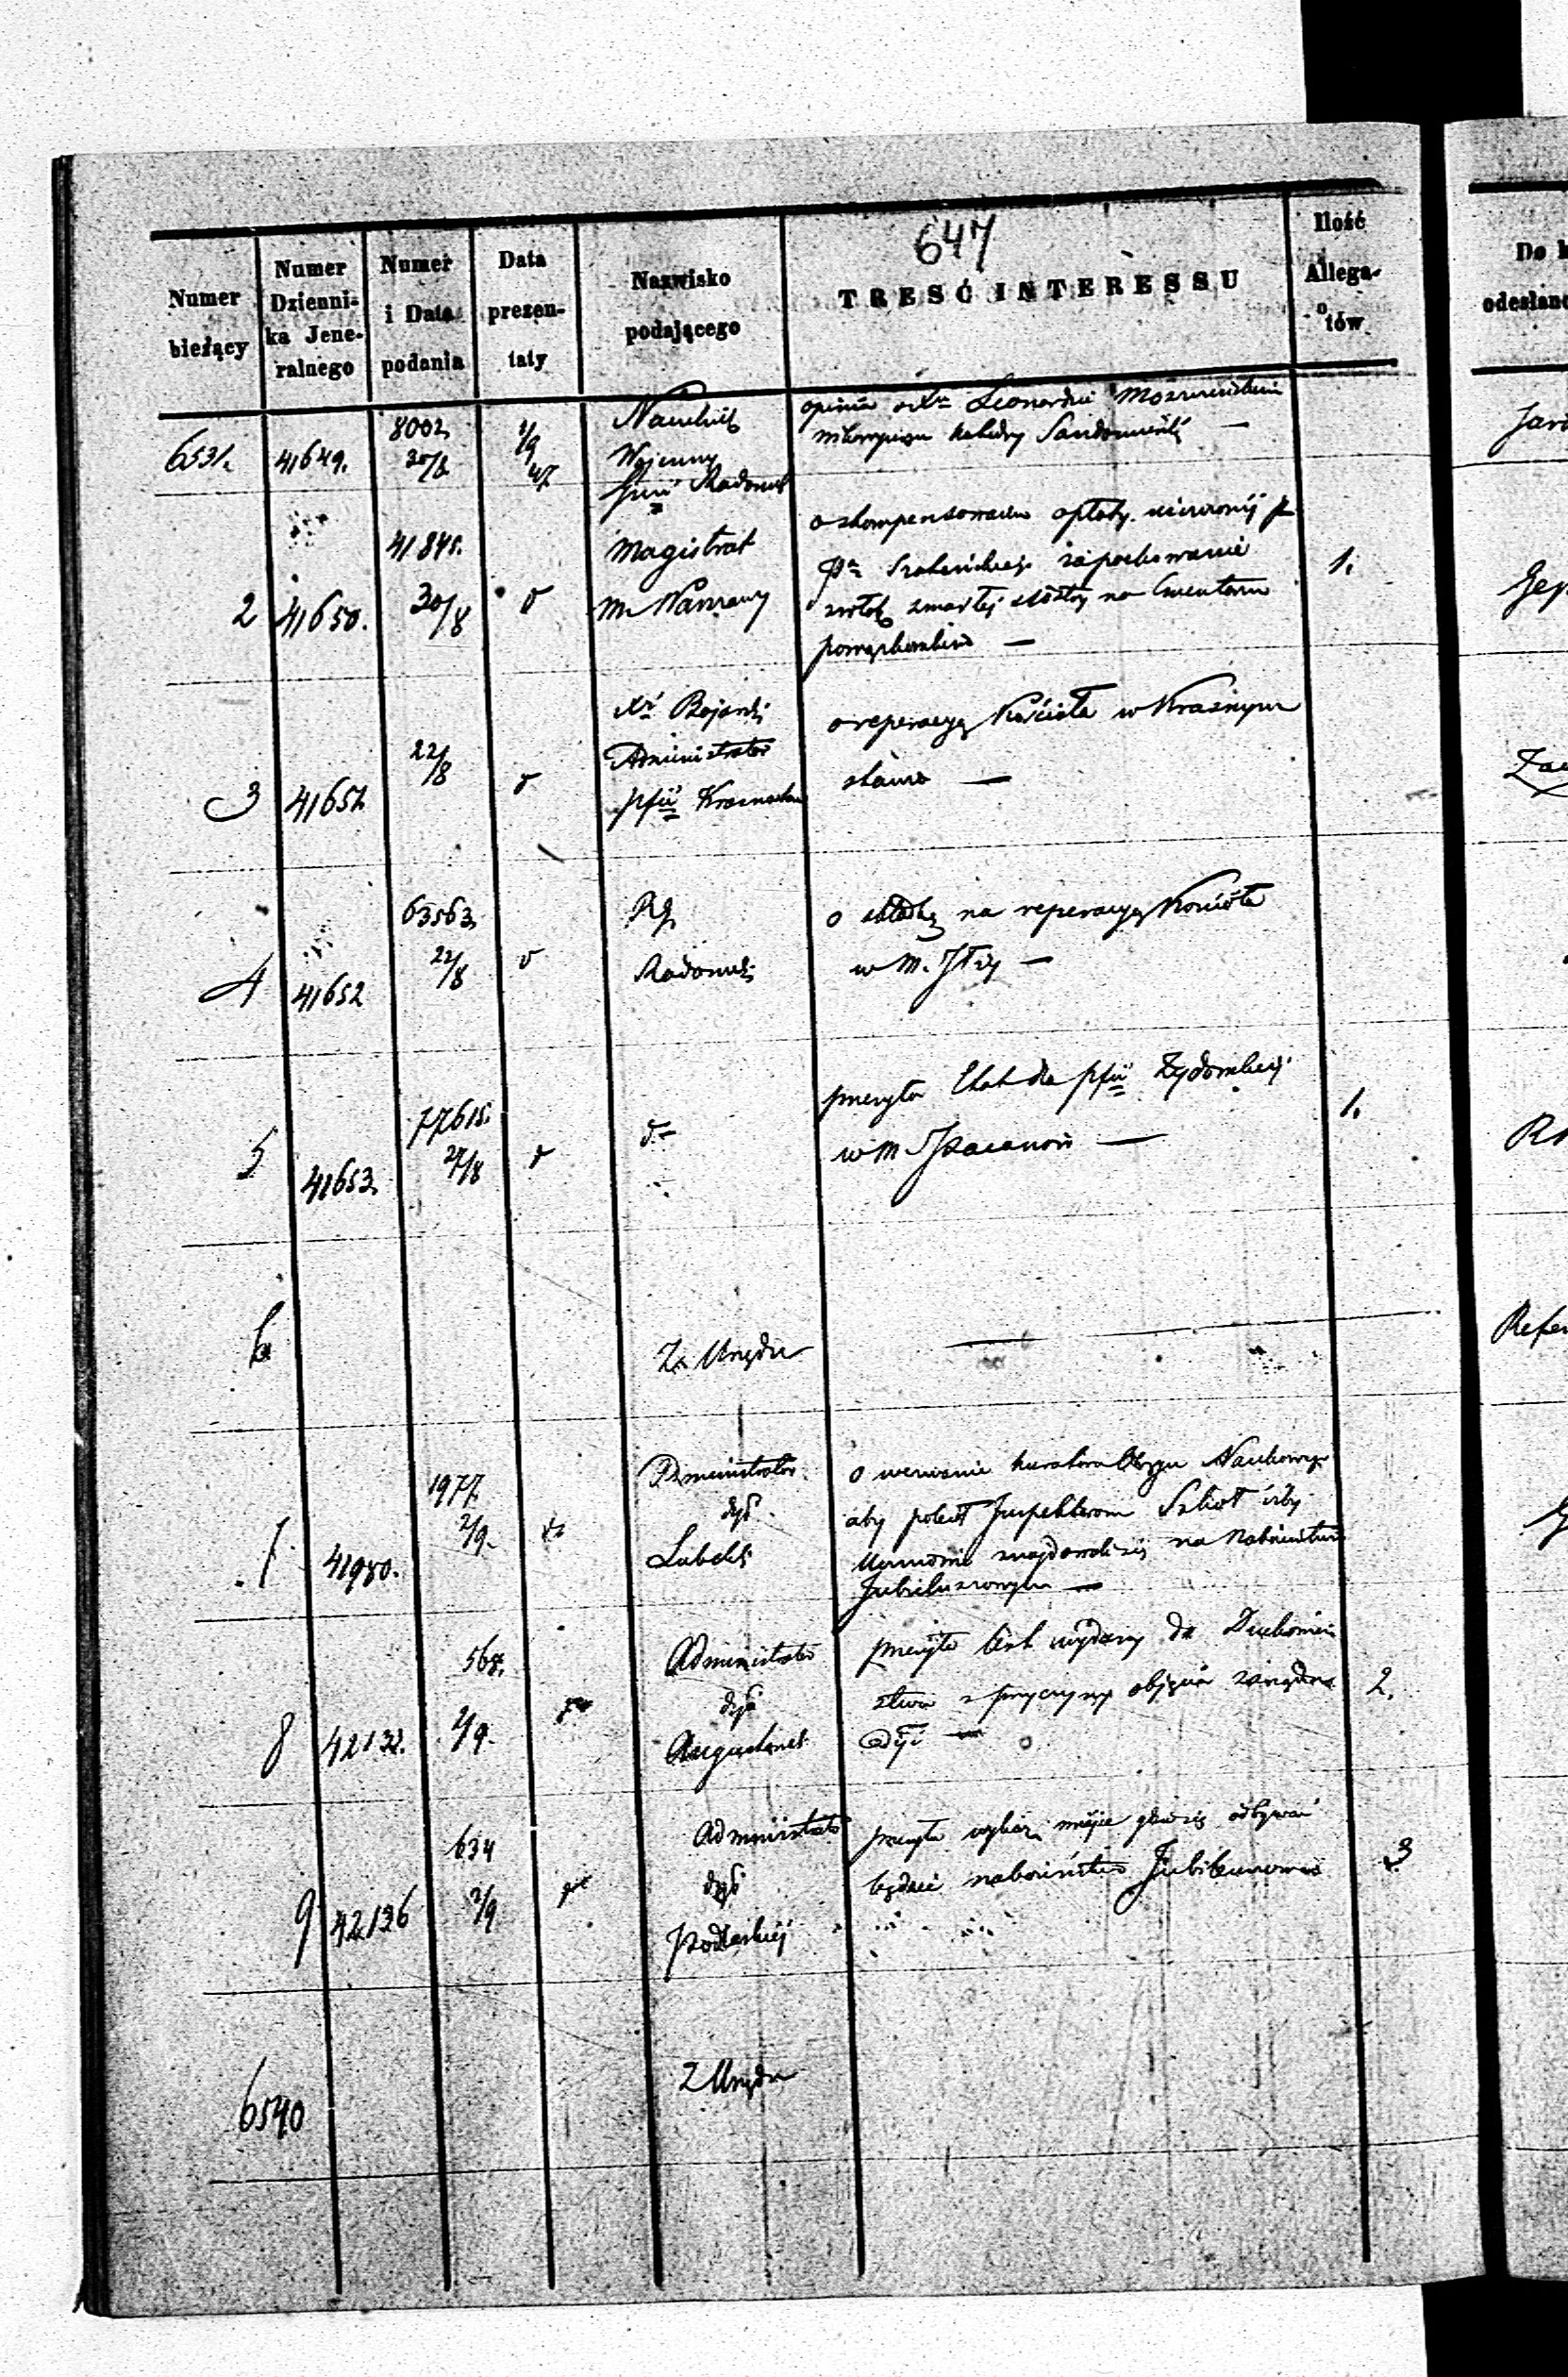 647
Numer bieżący
Numer Dzienni- ka Jene- ralnego
Numer i Data podania
Data prezen- taty
Nazwisko podającego
TRESĆ INTERESSU
Ilość Allega- tów
Do
odesłan
6531. 41649. 8002 30/8 1/9 47
Naczelnik
Wojenny
Gunii Radomsk
opinia o Xu Leonardzie
Katedry Sandomierski —
2 41650. 41845. 30/8 d
Magistrat
m. Warszawy
o skompensowanie opłaty
Pa za pochowanie
zwłok zmarłej na Cmentarzu
powązkowskim —
1.
3 41651. 22/8 d
Xd Bojarski
Administrator
pfii Krasnostaw
o reperacyą Kościoła w Krasnym
stawie —
4 41652 63563. 22/8 d
Rg.
Radomski
o składkę na reperacyą Kościoła
w M. Iłży —
5 41653. 77615. 24/8 d
do
przesyła Etat dla pfii
w M. Pacanow —
1.
6
Z Urzędu
—
Refer
7 41980. 1977. 2/9.
Administrator
dyi
Lubelski
o wezwanie kuratora Okręgu Naukowego
aby polecił Inspektorom Szkół iżby
Uczniowie znajdowali się na Nabożeństwie
Jubileuszowym —
8 42132. 568. 2/9.
Administrator
dyi
Augustowsk
przesyła list wydany do Duchowień
stwa z przyczyny objęcia zarządu
dyi —
2.
9 42136 634 2/9
Administrator
dyi
Podlaskiej
przesyła miejsc gdzie się odbywać
będzie nabożeństwo Jubileuszowe
3
6540
Z Urzędu